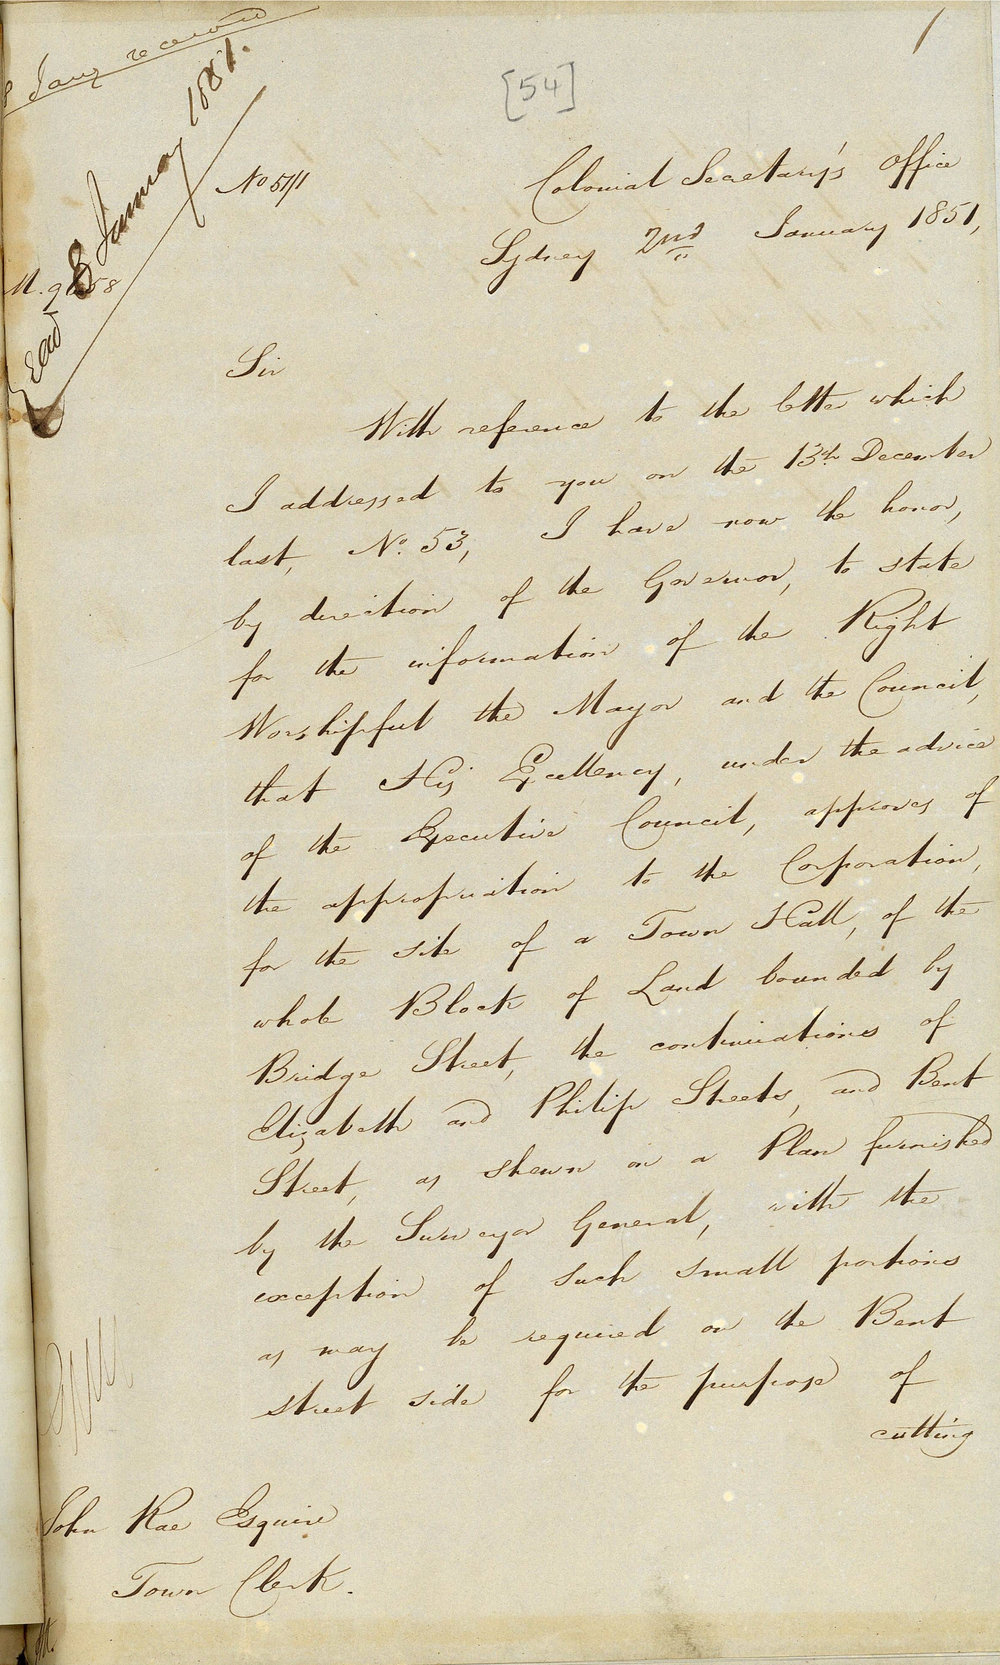 8 Jany received
Read 8 January 1851.
/
[54]
No 51/1
Colonial Secretary's Office
Sydney 2nd January 1851,
Sir
With reference to the letter which
I addressed to you on the 13th December
last, No. 53, I have now the honor,
by direction of the Governor, to state
for the information of the Right
Worshipful the Mayor and the Council,
that His Excellency, under the advice
of the Executive Council, approves of
the appropriation to the Corporation,
for the site of a Town Hall, of the
whole Block of Land bounded by
Bridge Street, the continuations of
Elizabeth and Philip Streets, and Bent
Street, as shewn on a Plan furnished
by the Surveyor General, with the
exception of such small portions
as may be required on the Bent
street side for the purpose of
cutting
John Rae Esquire
Town Clerk.